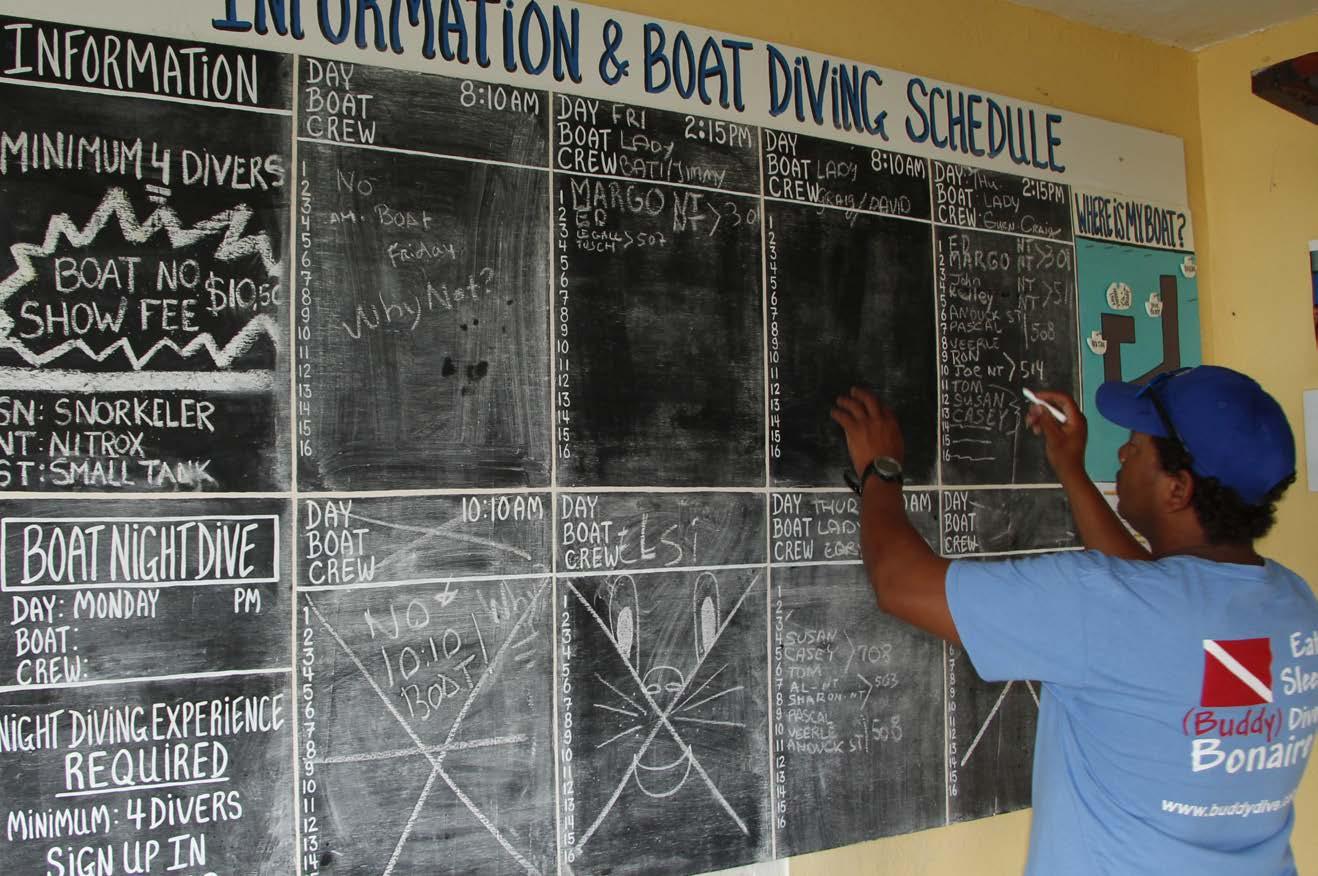 INFORMATION & BOAT DIVING SCHEDULE
INFORMATION
MINIMUM 4 DIVERS
BOAT NO
SHOW FEE $10,50
SN: SNORKELER
NT: NITROX
ST: SMALL TANK
BOAT NIGHT DIVE
DAY: MONDAY PM
BOAT:
CREW:
NIGHT DIVING EXPERIENCE
REQUIRED
MINIMUM: 4 DIVERS
SIGN UP IN
DAY
BOAT 8:10AM
CREW
1
2 No
3
4 BOAT
5
6 Friday
7
8 Why Not?
9
10
11
12
13
14
15
16
DAY FRI 2:15PM
BOAT LADY
CREW BATI/Jimmy
1 MARGO NT
2 ED NT >30
3
4 >507
5
6
7
8
9
10
11
12
13
14
15
16
DAY 8:10AM
BOAT LADY
CREW CRAIG/DAVID
1
2
3
4
5
6
7
8
9
10
11
12
13
14
15
16
DAY: Thu. 2:15PM
BOAT: LADY
CREW:
1 ED NT
2 MARGO NT
3 John NT
4
5 NT
6 ANOUCK ST
7 PASCAL 508
8 VEERLE
9 RON
10 JOE NT >514
11 TOM
12 SUSAN
13 CASEY
14
15
16
WHERE IS MY BOAT?
DAY 10:10AM
BOAT
CREW
NO
10:10
BOAT
Why
1
2
3
4
5
6
7
8
9
10
11
12
13
14
DAY
BOAT
CREW
ELSi
1
2
3
4
5
6
7
8
9
10
11
12
13
14
15
16
DAY THUR AM
BOAT LADY
CREW
1
2
3
4 SUSAN
5 CASEY >708
6 TOM
7 AL-NT >503
8 SHARON-NT
9 PASCAL
10 VEERLE 508
11 ANOUCK ST
12
13
14
15
16
DAY
BOAT
CREW
6
7
8
9
10
11
12
13
14
15
16
Eat
Sleep
(Buddy) Dive
Bonaire
www.buddydive.